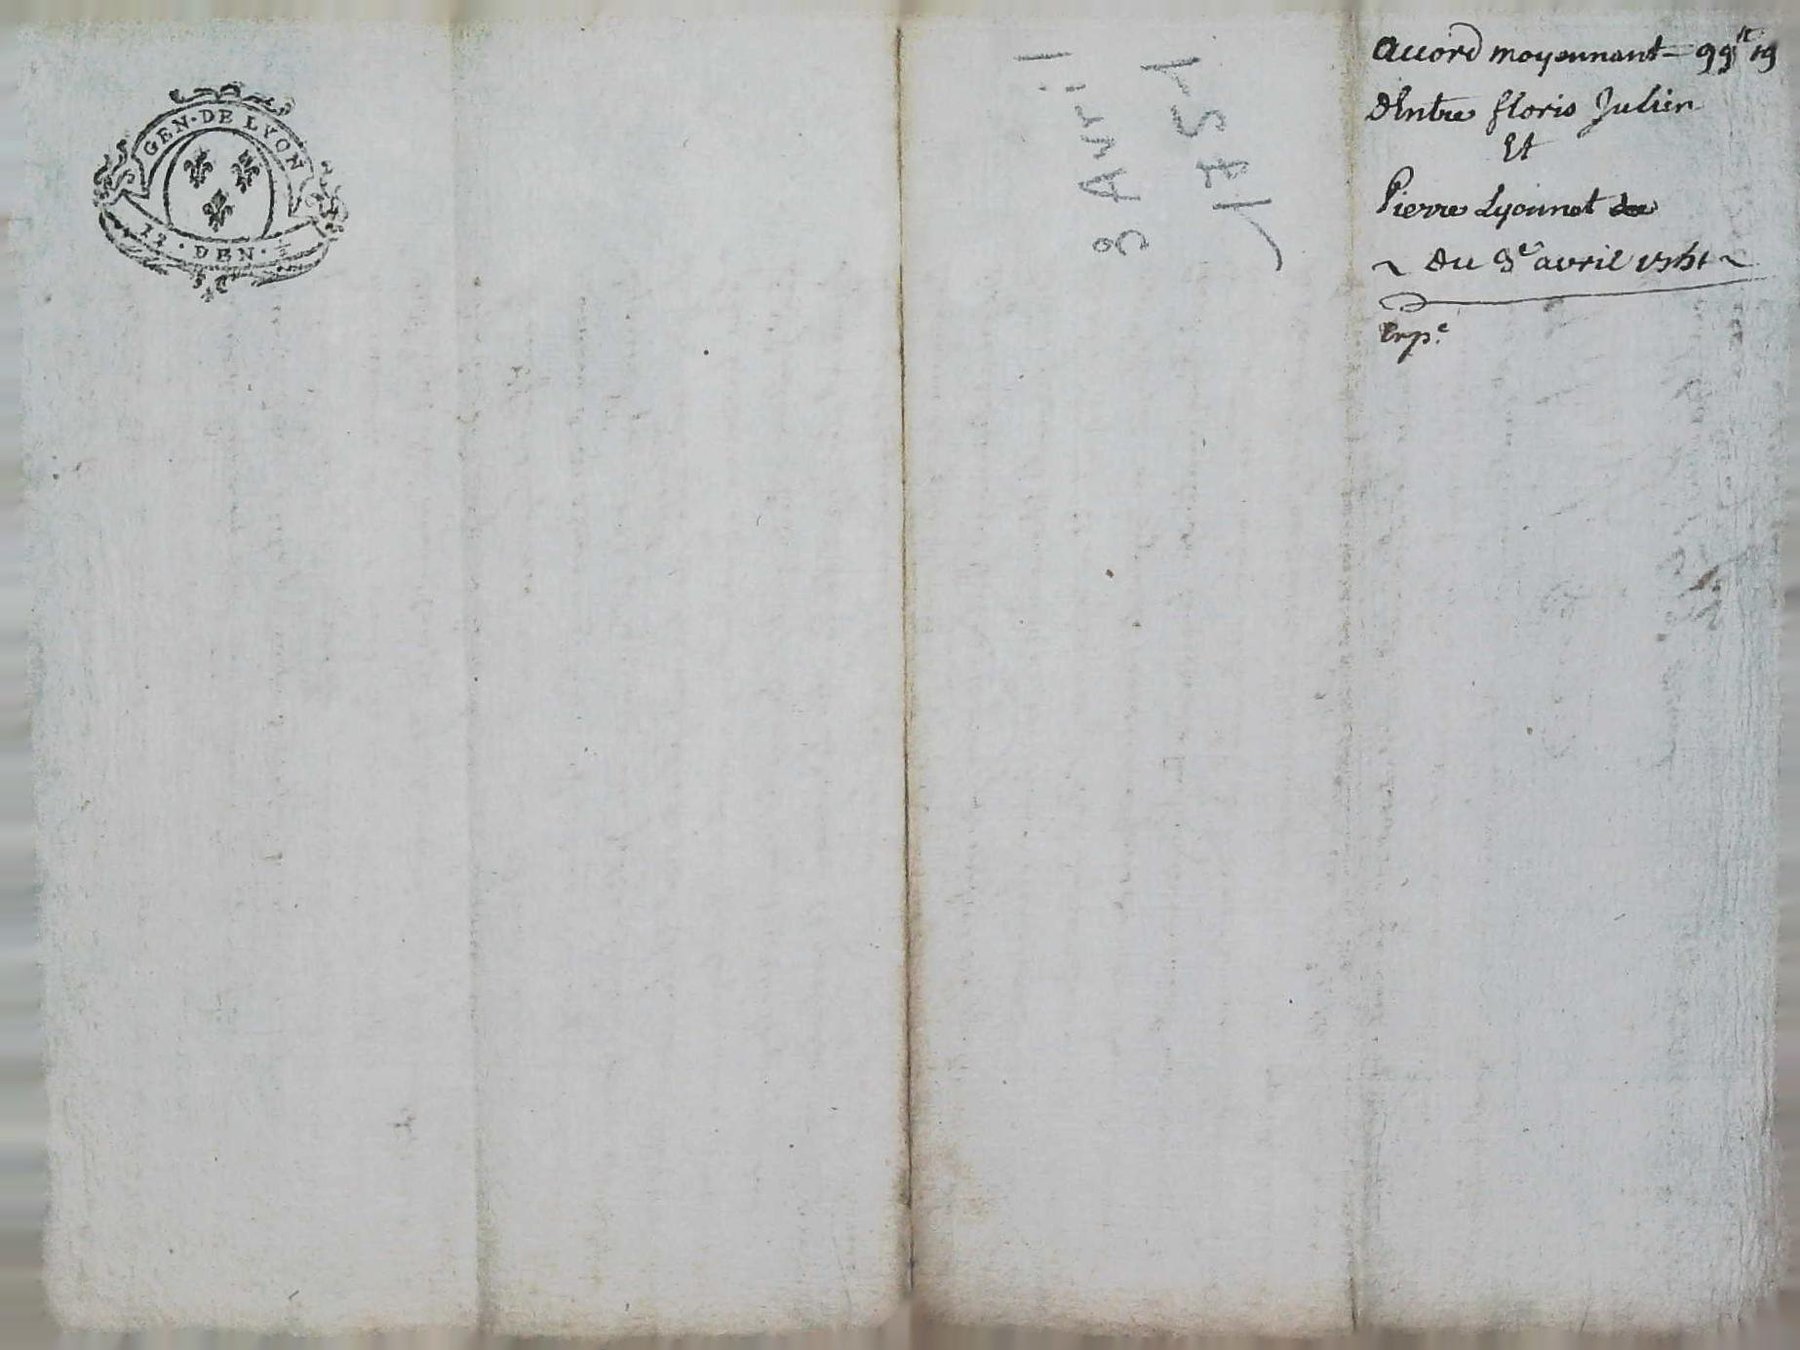 GEN · DE LYON
12 · DEN · ½
3 Avril
1751
accord moyennant = 99tt 19
d'Entre floris Julien
Et
Pierre Lyonnet
~ du 3e avril 1751 ~
Exp.e